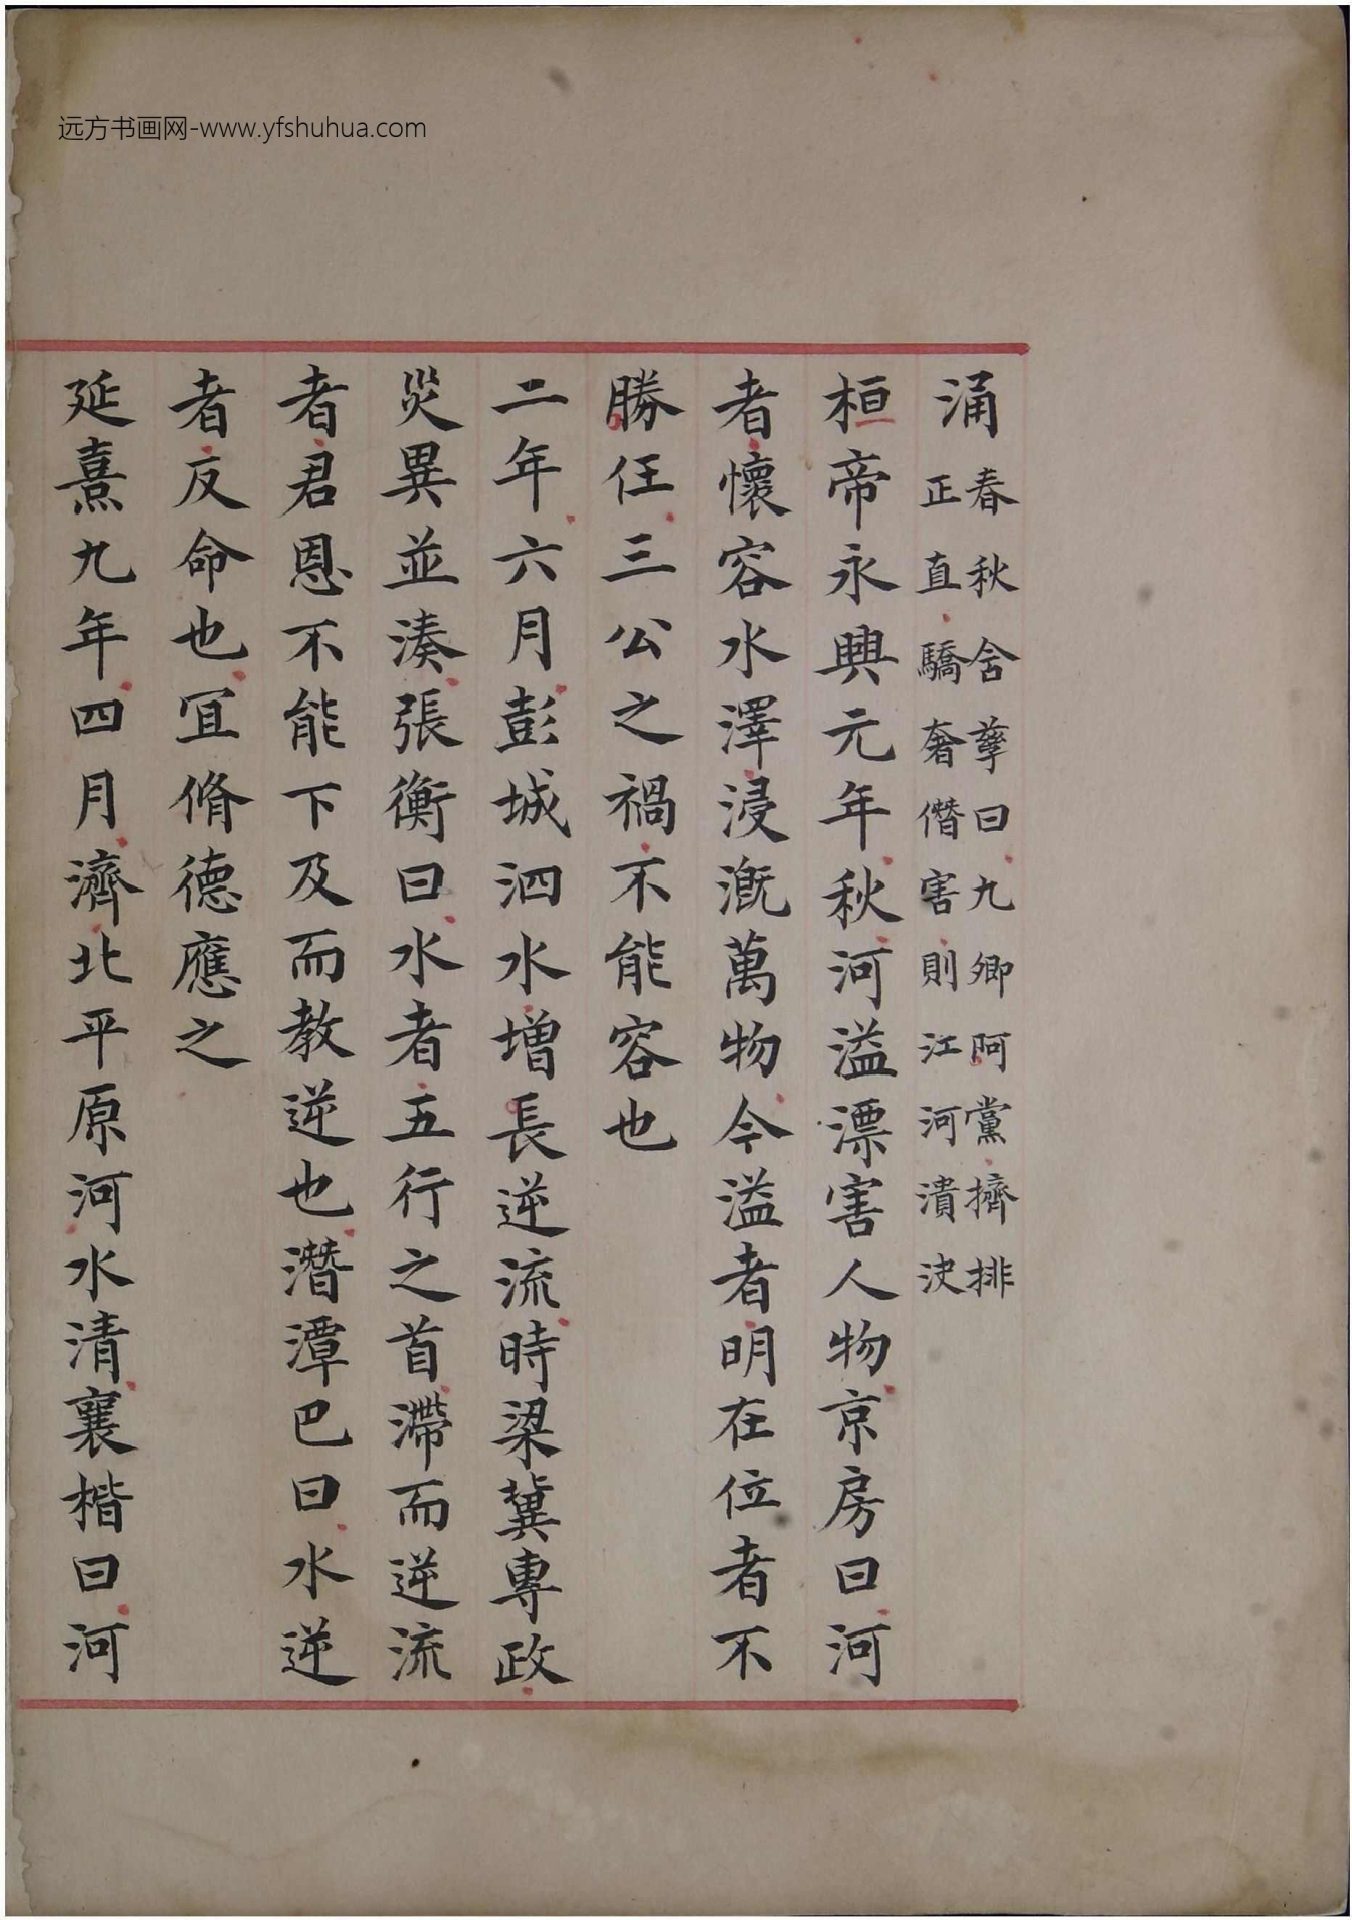 远方书画网-www.yfshuhua.com
涌
春秋含孳曰九卿阿黨擠排
正直驕奢僭害則江河潰决
桓帝永興元年秋河溢漂害人物京房曰河
者懷容水澤浸溉萬物今溢者明在位者不
勝任三公之禍不能容也
二年六月彭城泗水增長逆流時梁冀專政
災異並湊張衡曰水者五行之首滯而逆流
者君恩不能下及而教逆也潛潭巴曰水逆
者反命也冝脩德應之
延熹九年四月濟北平原河水清襄楷曰河